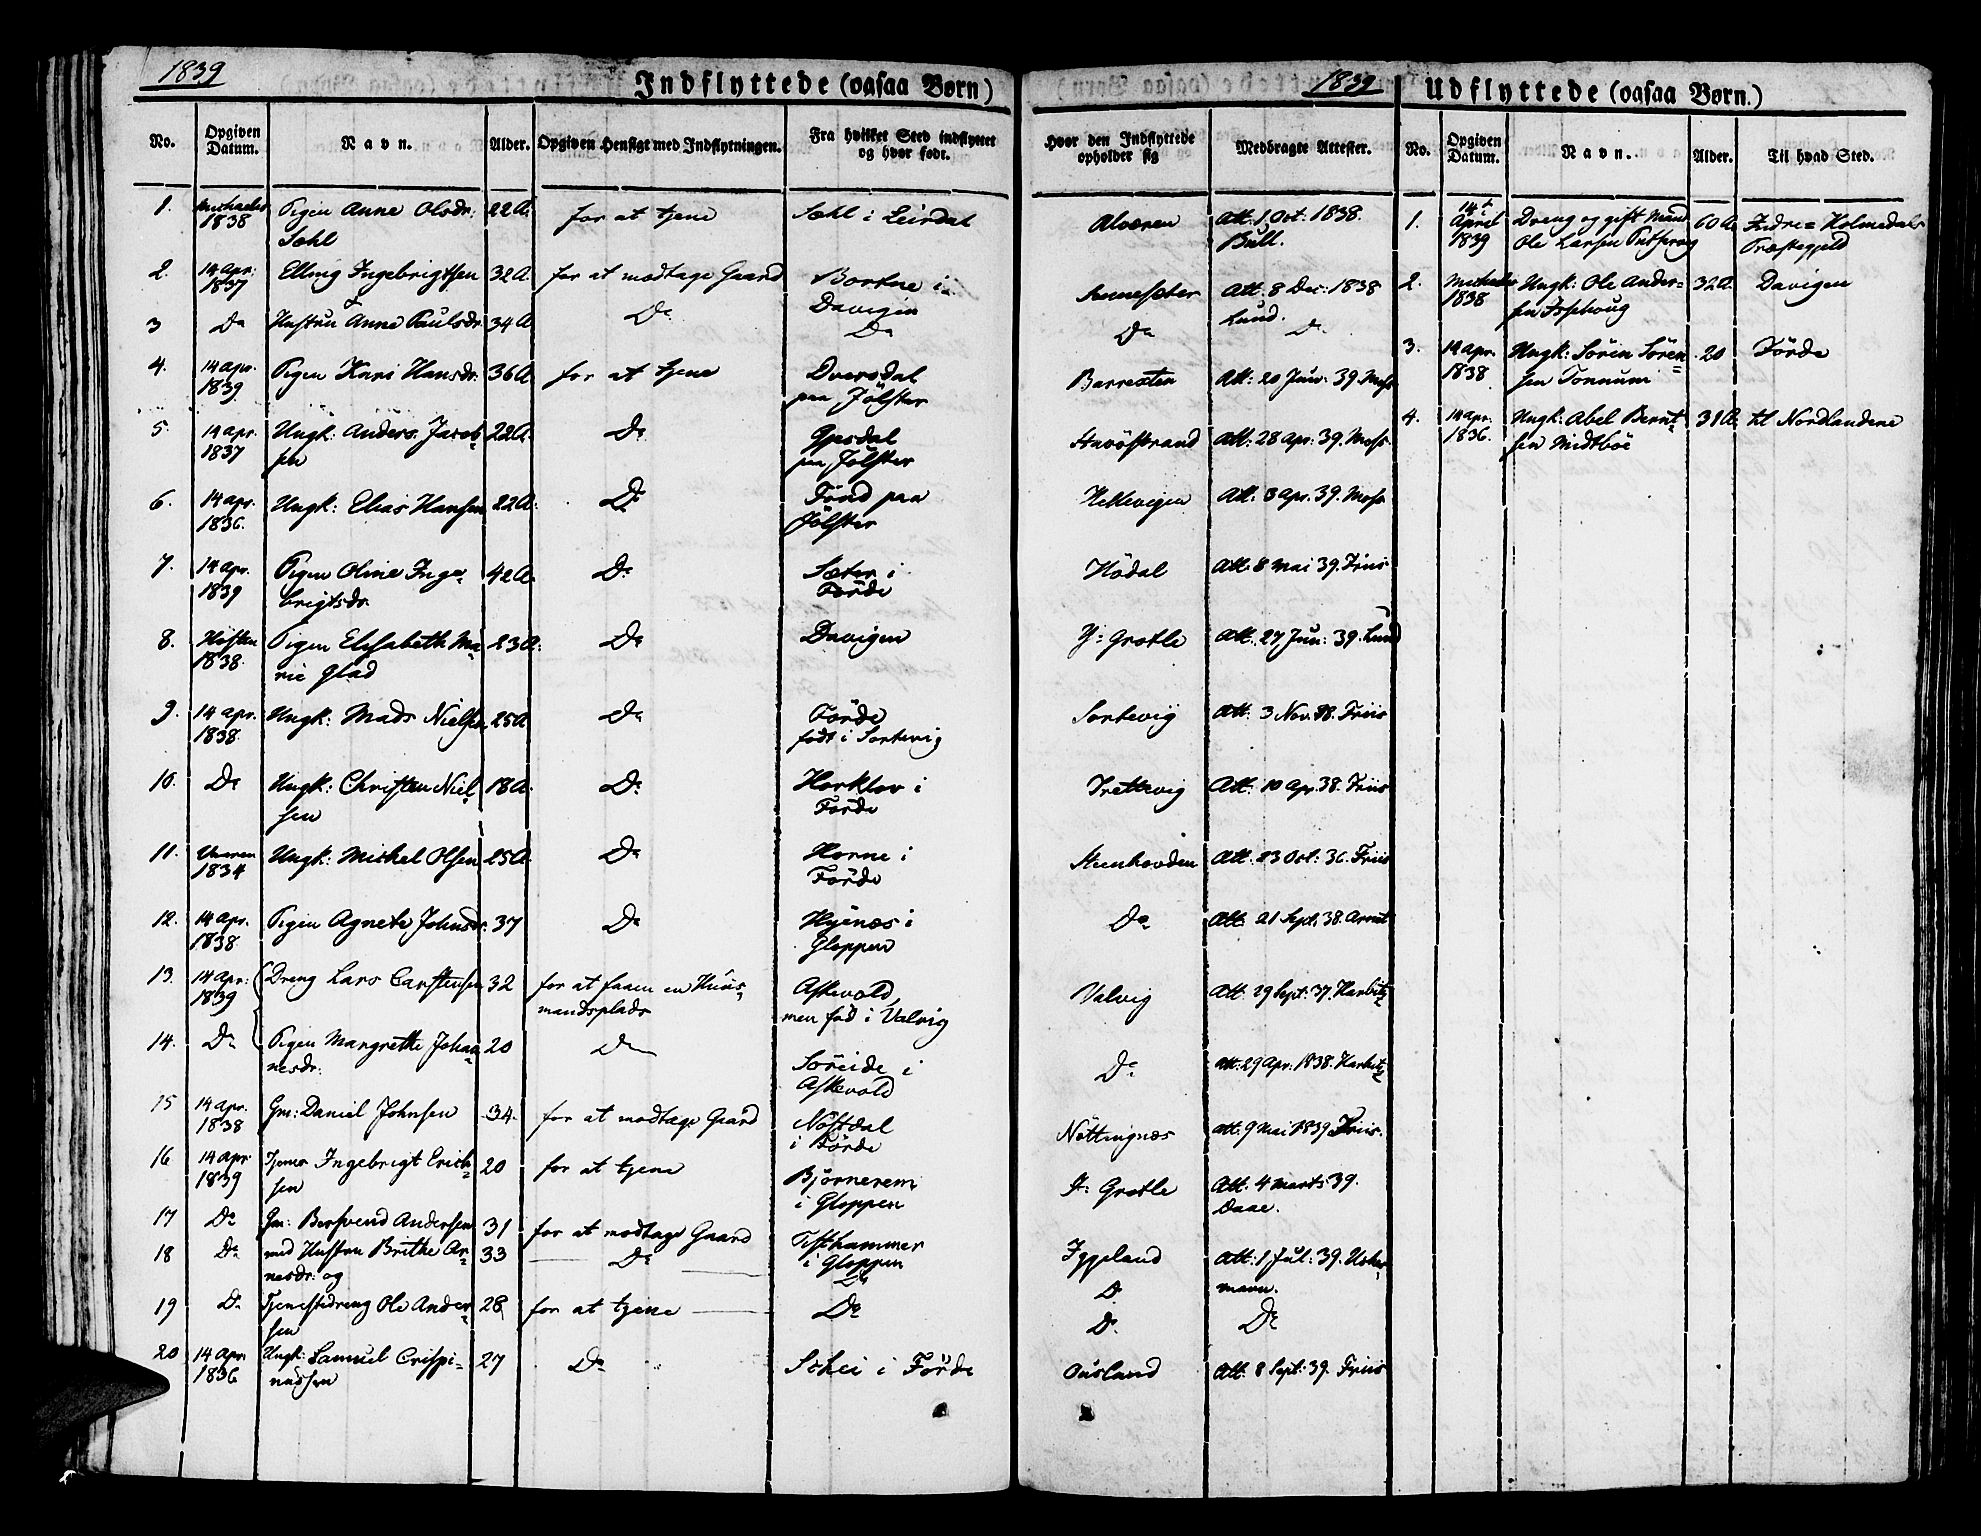 1839
Indflyttede (ogsaa Børn)
No.
Opgiven Datum.
Navn.
Alder.
Opgiven Hensigt med Indflytningen.
Fra hvilket Sted indflyttet og hvor født.
1. Michaelis 1838 Pigen Anne Olsdr: Sæhl 22 A. for at tjene Sæhl i Leirdal
2. 14 Apr: 1837 Elling Ingebrigtsen & 32 A. for at modtage Gaard Bortne i Davigen
3 Do Hustru Anne Paulsdr. 34 A. Do Do
4. 14 Apr. 1839 Pigen Kari Hansdr. 36 A. for at tjene Dvergsdal paa Jölster
5. 14 Apr. 1837 Ungk: Anders Jacobsen 22 A. Do paa Jölster
6. 14 Apr. 1836. Ungk: Elias Hansen 22 A. Do Fönd paa Jölster
7. 14 Apr. 1839 Pigen Oline Ingebrigtsdr. 42 A. Do Sæter i Förde
8. Høsten 1838. Pigen Elisabeth Marie Glad 23 A. Do Davigen
9. 14 Apr. 1838. Ungk: Mads Nielsen 25 A. Do Förde født i Sortevig
10. Do Ungk: Christen Nielsen 18 A. Do Horklov i Förde
11. Vaaren 1834 Ungk: Mickel Olsen 25 A. Do Horne i Förde
12. 14 Apr. 1838 Pigen Agnete Johnsdr. 37 Do Hyenæs i Gloppen
13. 14 Apr: 1839 Dreng Lars Carstensen 32 for at faae en Huusmandsplads Askevold, men fød i Valvig
14. Do Pigen Margrethe Johannesdr: 20 Do Söreide i Askevold
15 14 Apr. 1838 Gm: Daniel Johnsen 34. for at modtage Gaard Nöstdal i Förde
16 14 Apr. 1839 Tjener Ingebrigt Erichsen 20 for at tjene Björnerem i Gloppen
17 Do Gm: Bersvend Andersen 31 for at modtage Gaard Tisthammer i Gloppen
18 Do med Hustru Brithe Arnesdr: og 33 Do Do
19 Do Tjenestedreng Ole Andersen 28 for at tjene Do
20 14 Apr. 1836 Ungk: Samuel Crispinussen 27 Do Schei i Förde
1839
Hvor den Indflyttede opholder sig
Medbragte Attester.
Alværen Att. 1 Oct: 1838. Bull.
Sunnesæter Att: 8 Dec: 1838 Lund.
Do Do
Barresten Att: 20 Juni: 39. Moss
Att: 28 Apr: 39. Moss
Hellevigen Att: 3 Apr. 39. Moss
Hödal Att: 8 Mai 39. Friis
Y: Grotle Att: 27 Jun: 39. Lund
Sortevig Att: 3 Nov. 38. Friis
Trettevig Att: 10 Apr. 38. Friis
Steenhovden Att: 23 Oct: 36. Friis
Do Att: 21 Sept: 38.
Valvig Att: 29 Sept: 37. Harbitz
Do Att: 29 Apr: 1838. Harbitz
Nöttingnæs Att: 9 Mai 1839. Friis.
I: Grotle Att: 4 Marts 39. Daae.
Iggeland Att: 1 Jul: 39.
D
D. Do
Ousland Att: 8 Sept: 39. Friis
Udflyttede (ogsaa Børn.)
No.
Opgiven Datum.
Navn.
Alder.
Til hvad Sted.
1. 14t April 1839 Dreng og gift Mand Ole Larsen 60 A Indre= Holmedals Præstegjeld
2. Michaelis 1838 Ungk: Ole Andersen 32 A. Davigen
3. 14 Apr. 1838 Ungk: Sören Sörensen Tonnum 20 Förde
4. 14 Apr. 1836. Ungk: Abel Berntsen Midtböe 31 A. til Nordlandene